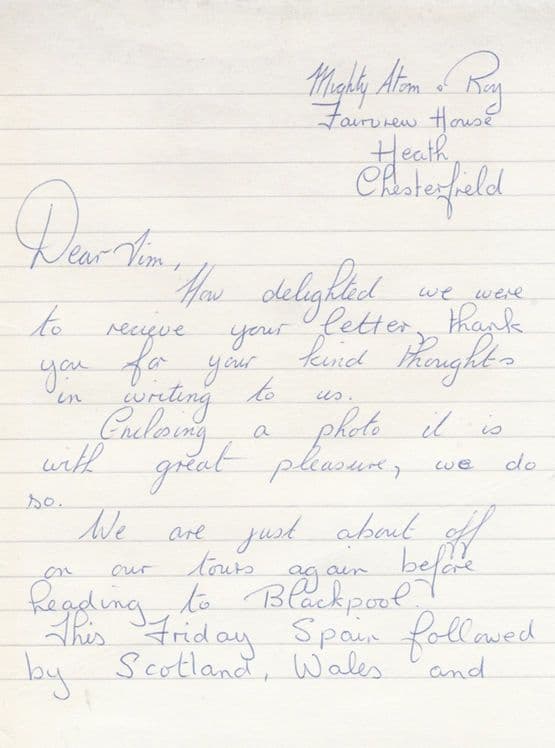 Mighty Atom & Roy
Fairview House
Heath
Chesterfield
Dear Jim,
How delighted we were
to recieve your letter, thank
you for your kind thoughts
in writing to us.
Enclosing a photo it is
with great pleasure, we do
so.
We are just about off
on our tours again before
heading to Blackpool.
This Friday Spain followed
by Scotland, Wales and